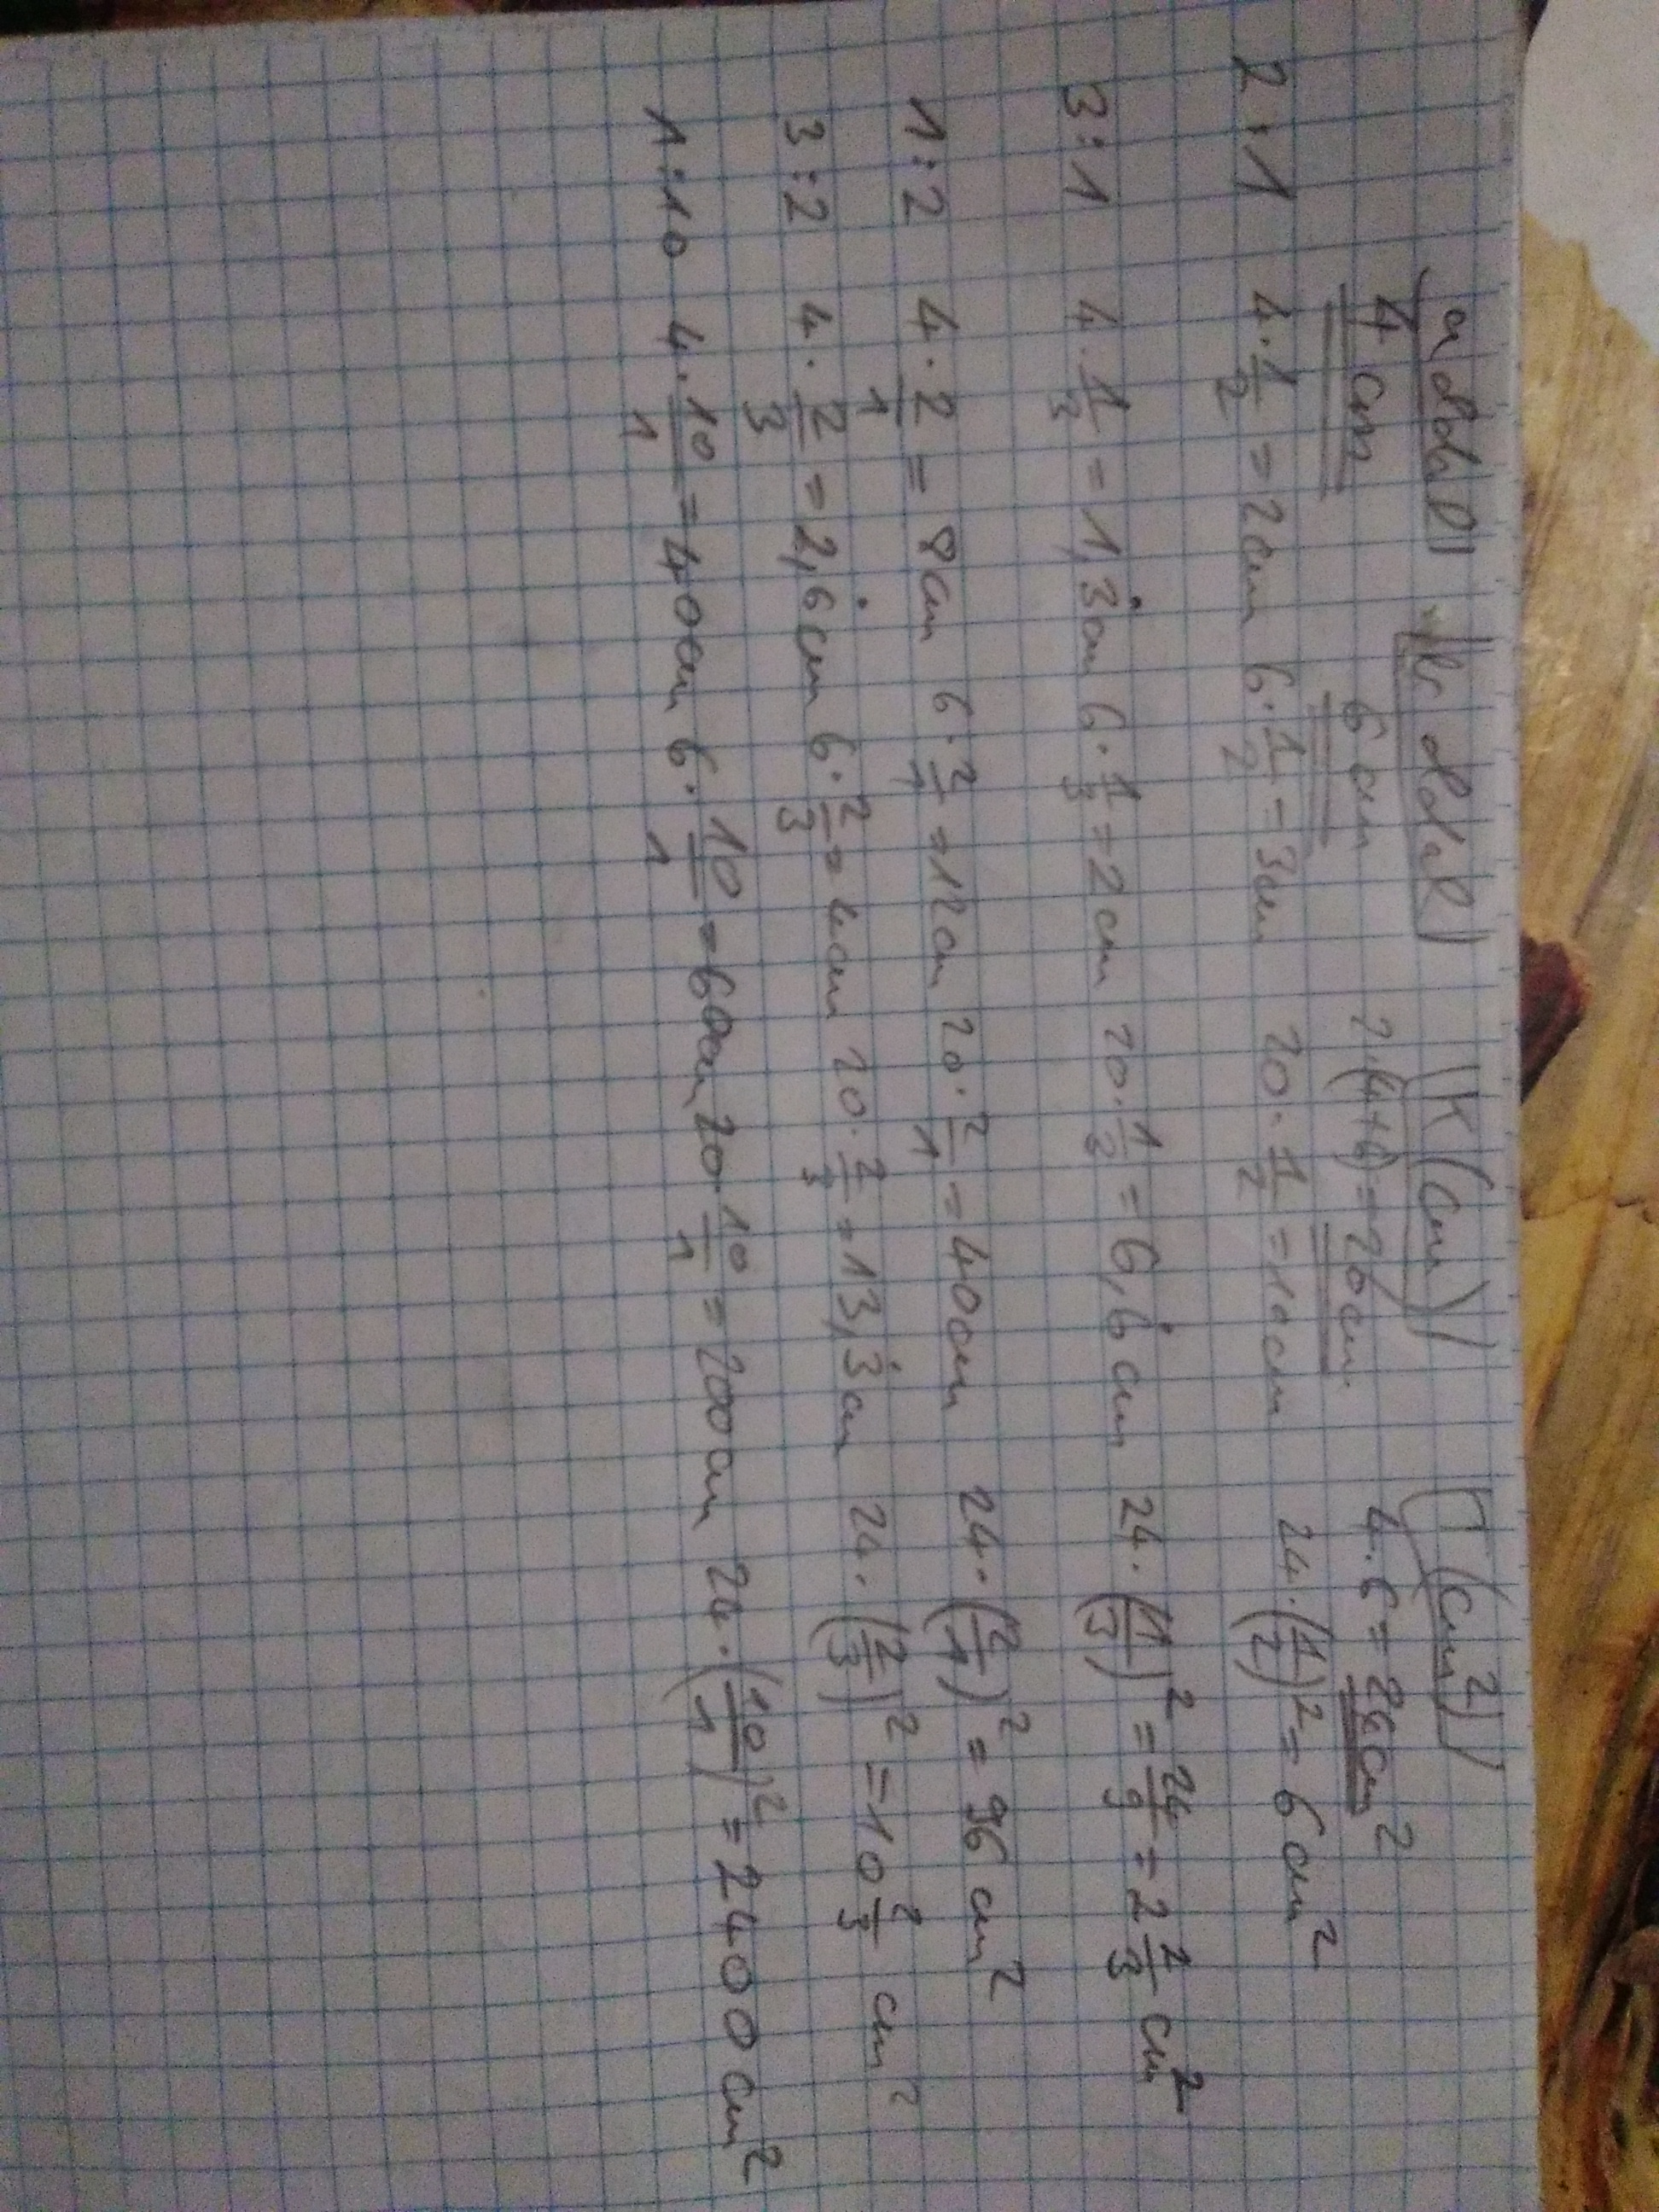 a oldal b oldal K (cm) T (cm²)
4 cm 6 cm 2·(4+6)=20cm 4·6=24cm²
2:1 4·1/2=2cm 6·1/2=3cm 20·1/2=10cm 24·(1/2)²=6cm²
3:1 4·1/3=1,3̇cm 6·1/3=2cm 20·1/3=6,6̇cm 24·(1/3)²=24/9=2 2/3 cm²
1:2 4·2/1=8cm 6·2/1=12cm 20·2/1=40cm 24·(2/1)²=96cm²
3:2 4·2/3=2,6̇cm 6·2/3=4cm 20·2/3=13,3̇cm 24·(2/3)²=10 2/3 cm²
1:10 4·10/1=40cm 6·10/1=60cm 20·10/1=200cm 24·(10/1)²=2400cm²